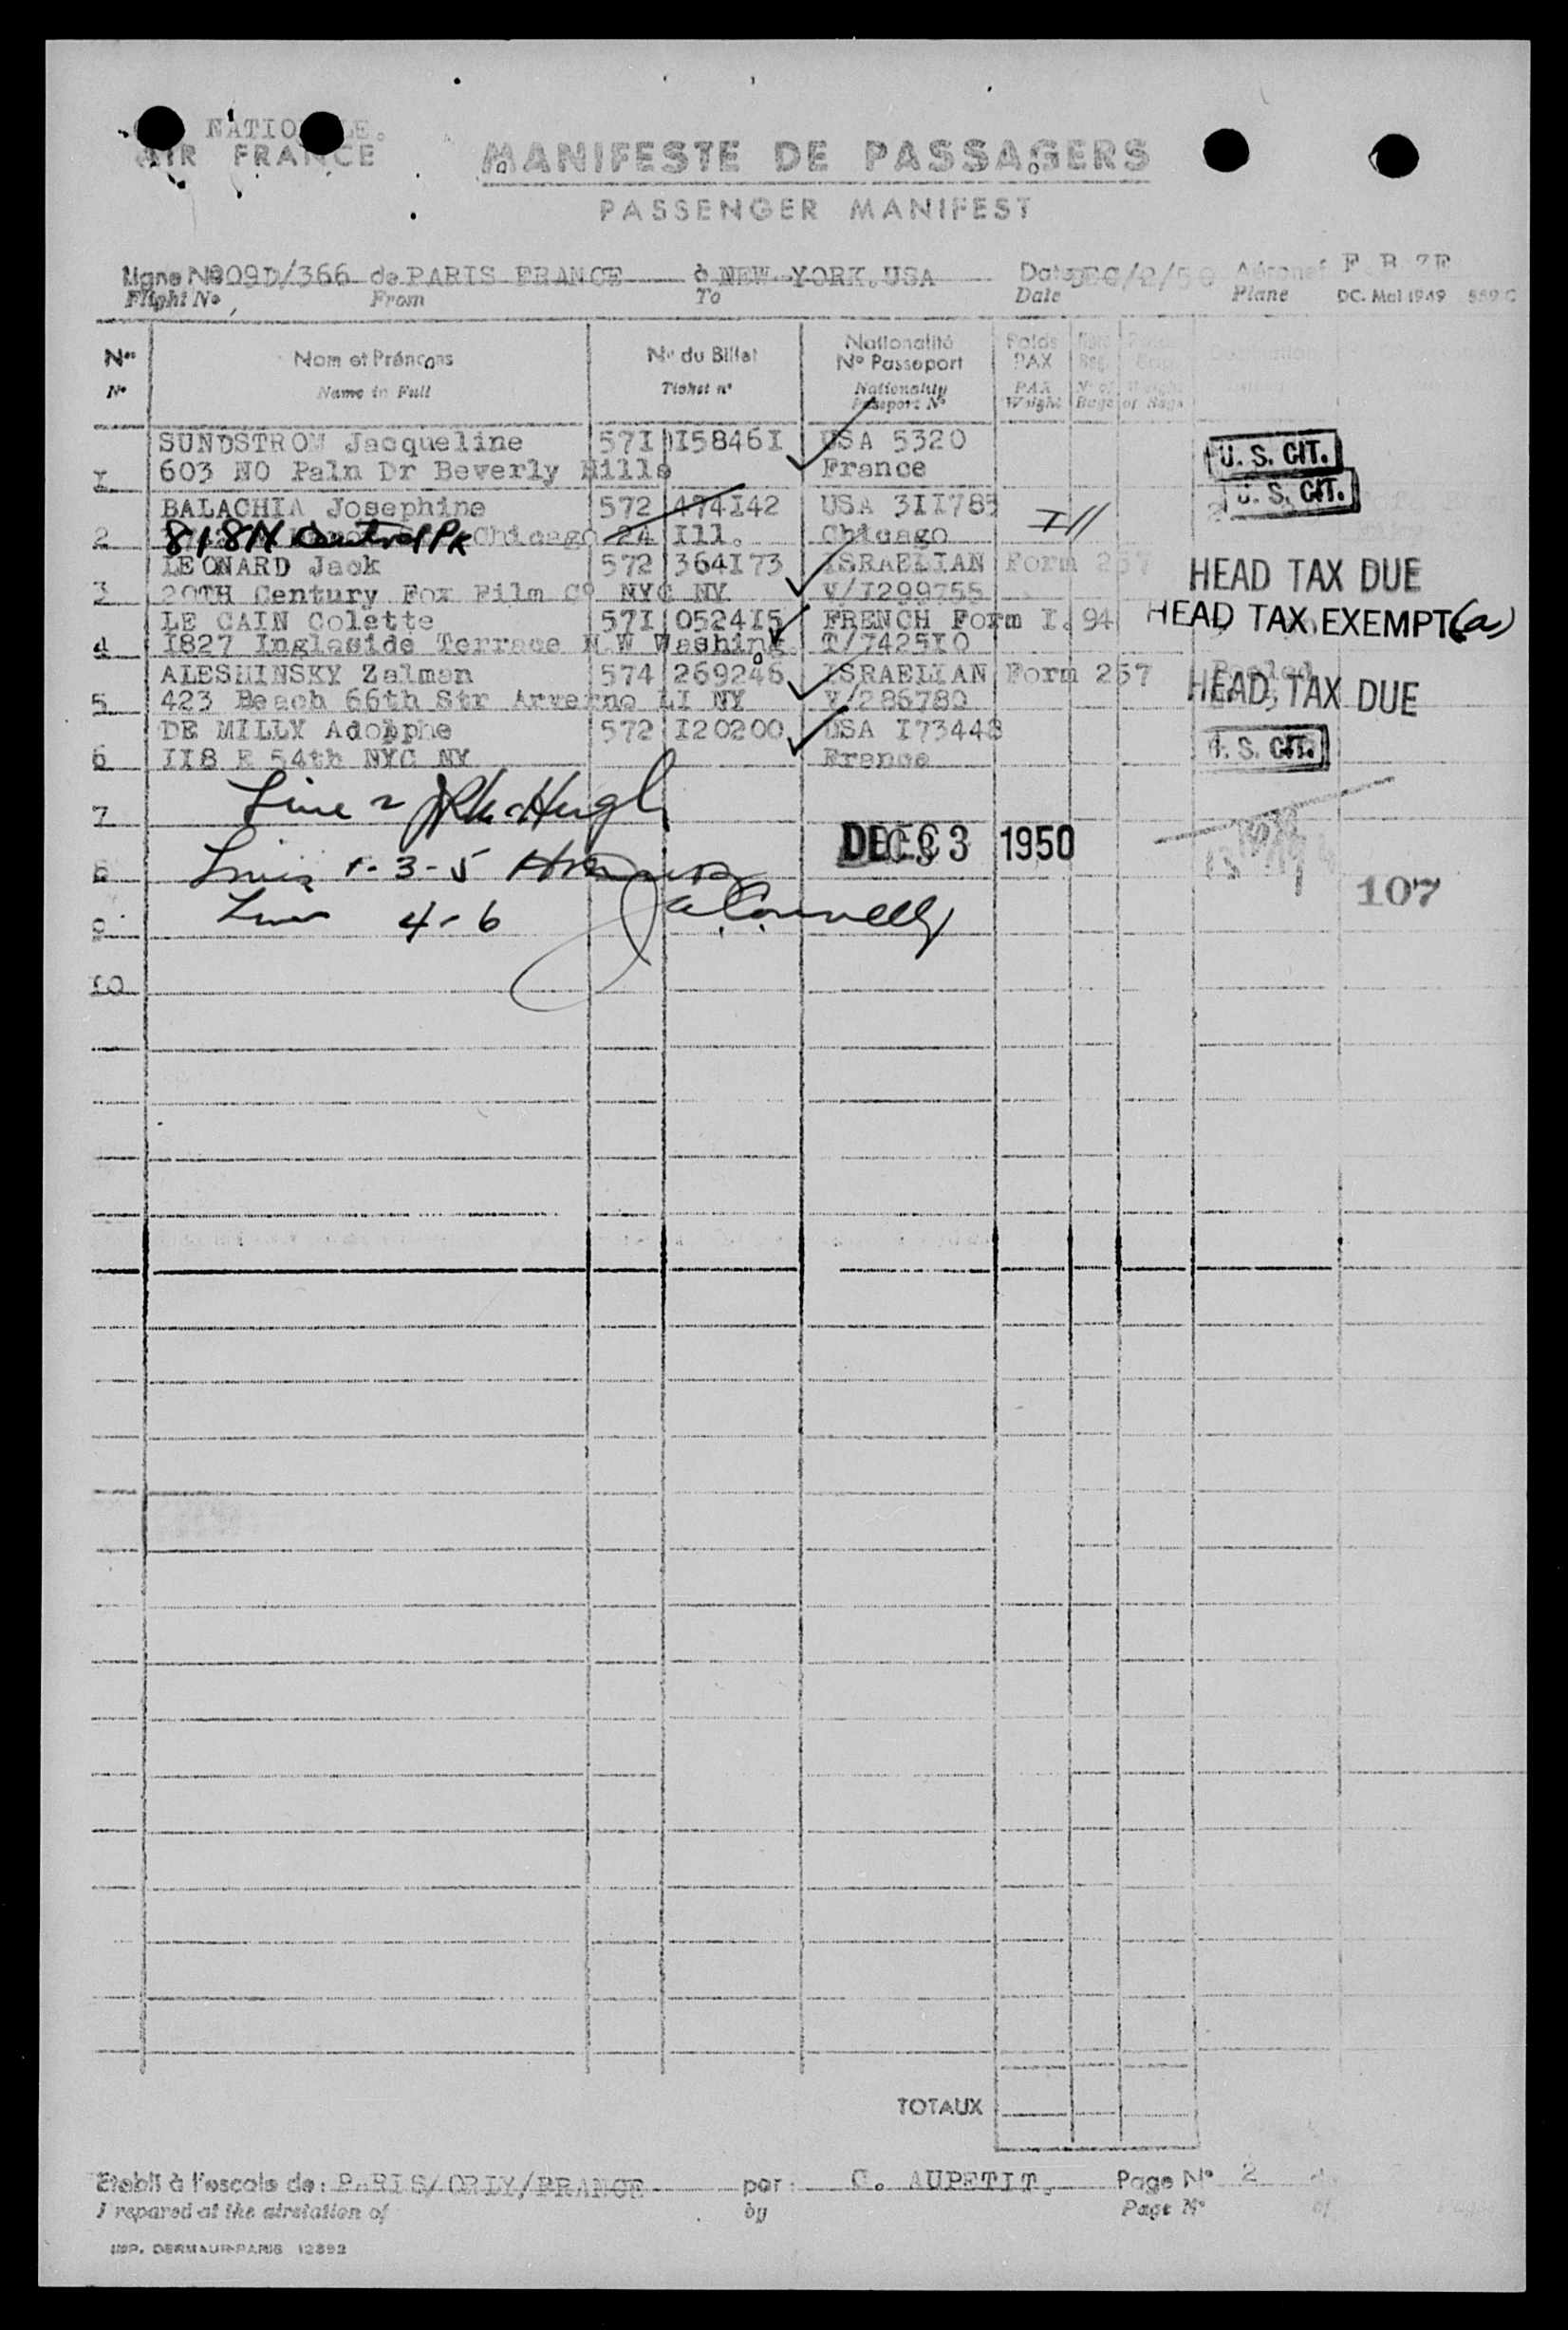 NATIO LE.
AIR FRANCE
MANIFESTE DE PASSAGERS
PASSENGER MANIFEST
Ligne No 09D/366 de PARIS FRANCE à NEW YORK.USA Date DEC/2/50 Aéronef
Flight No From To Date Plane DC. Mai 1949
Nos Nom et Prénoms No du Billet Nationalité No Passeport Poids PAX
No Name in Full Ticket no Nationality Passport No PAX Weight No of Bags Weight of Bags
SUNDSTROM Jacqueline 57I I5846I USA 5320 U. S. CIT.
I 603 NO Palm Dr Beverly Hills France
BALACHIA Josephine 572 474I42 USA 3II785 Ill U. S. CIT.
2 818 N Central Pk Chicago 24 Ill. Chicago
LEONARD Jack 572 364I73 ISRAELIAN Form 257 HEAD TAX DUE
3 20TH Century Fox Film Co NYC NY V/I299755
LE CAIN Colette 57I 0524I5 FRENCH Form I.94 HEAD TAX EXEMPT (a)
4 I827 Ingleside Terrace N.W Washing. T/7425I0
ALESHINSKY Zalman 574 269246 ISRAELIAN Form 257 HEAD TAX DUE
5 423 Beach 66th Str Arverne LI NY V/286780
DE MILLY Adolphe 572 I20200 USA I73448 U. S. CIT.
6 II8 E 54th NYC NY France
7 Line 2 McHugh
DEC 3 1950
8 Lines 1-3-5
107
9 Lines 4-6 Connelly
10
TOTAUX
Etabli à l'escale de: PARIS/ORLY/FRANCE par: C. AUPETIT. Page No 2
Prepared at the airstation of by Page No of
IMP. DERMAUR-PARIS 12892